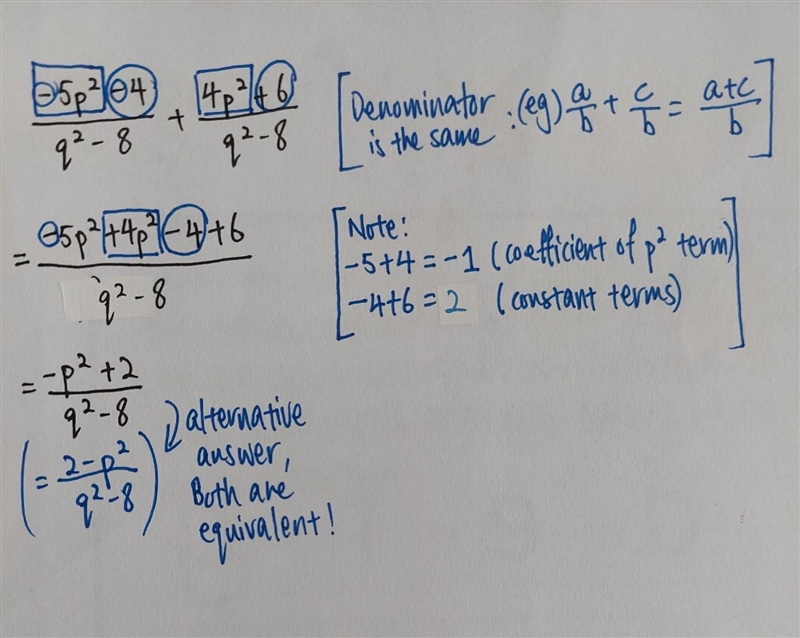 (-5p² - 4)/(q² - 8) + (4p² + 6)/(q² - 8)
[Denominator is the same : (eg) a/b + c/b = (a+c)/b]
= (-5p² + 4p² - 4 + 6)/(q² - 8)
[Note:
-5+4 = -1 (coefficient of p² term)
-4+6 = 2 (constant terms)]
= (-p² + 2)/(q² - 8)
(= (2 - p²)/(q² - 8))
alternative
answer,
Both are
equivalent!